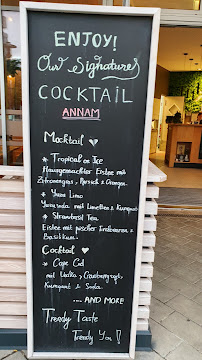 ENJOY!
Our Signatures
COCKTAIL
ANNAM
Mocktail
* Tropical on Ice
Hausgemachter Eistee mit
Zitronengras, Pfirsich & Orangen
* Yuzu Limo
Yuzusoda mit Limetten & Kumquat
* Strawbasil Tea
Eistee mit frischer Erdbeeren &
Basilikum
Cocktail
* Cape Cod
mit Vodka, Cranberrysaft,
Kumquat & Soda
.... AND MORE
Trendy Taste
Trendy You!